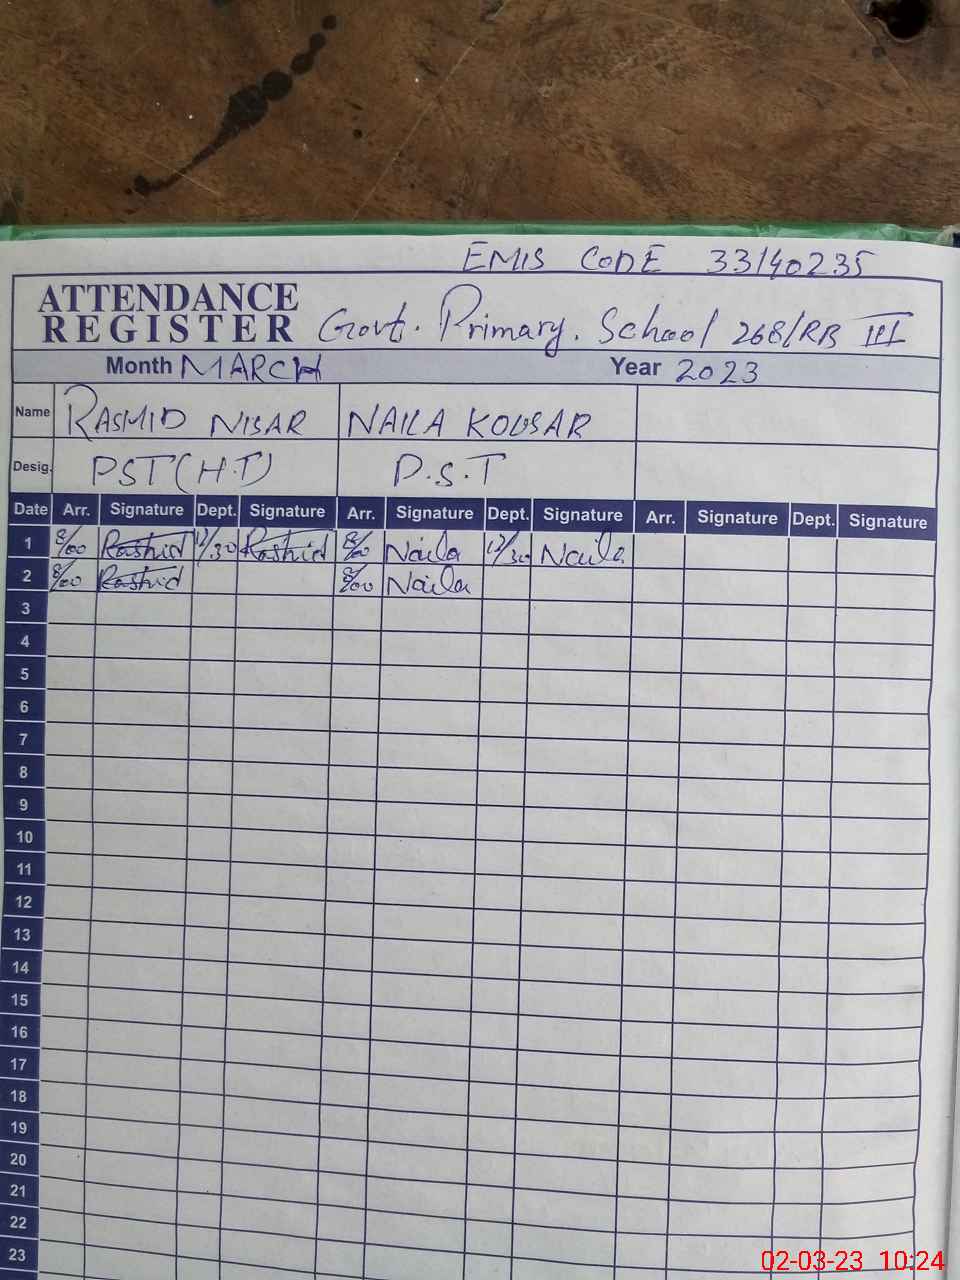 EMIS CODE 33140235
ATTENDANCE
REGISTER Govt. Primary. School 268/RB III
Month MARCH Year 2023
Name RASHID NISAR NAILA KOUSAR
Desig. PST(H.T) P.S.T
Date Arr. Signature Dept. Signature Arr. Signature Dept. Signature Arr. Signature Dept. Signature
1 8/00 Rashid 12/30 Rashid 8/00 Naila 12/30 Naila
2 8/00 Rashid 8/00 Naila
3
4
5
6
7
8
9
10
11
12
13
14
15
16
17
18
19
20
21
22
23
02-03-23 10:24